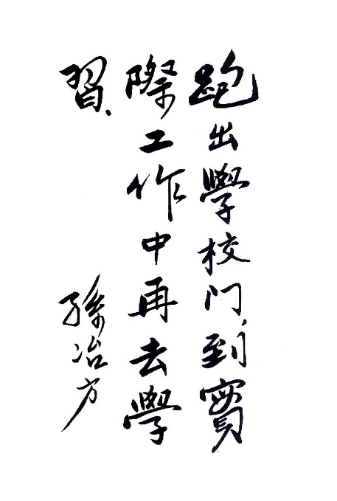 跑出學校門,到實
際工作中再去學
習、
孫冶方